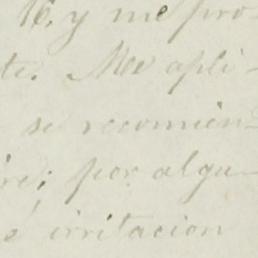 16, y me pro-
te. Me apli-
se recomien-
ire; por algu-
é irritacion